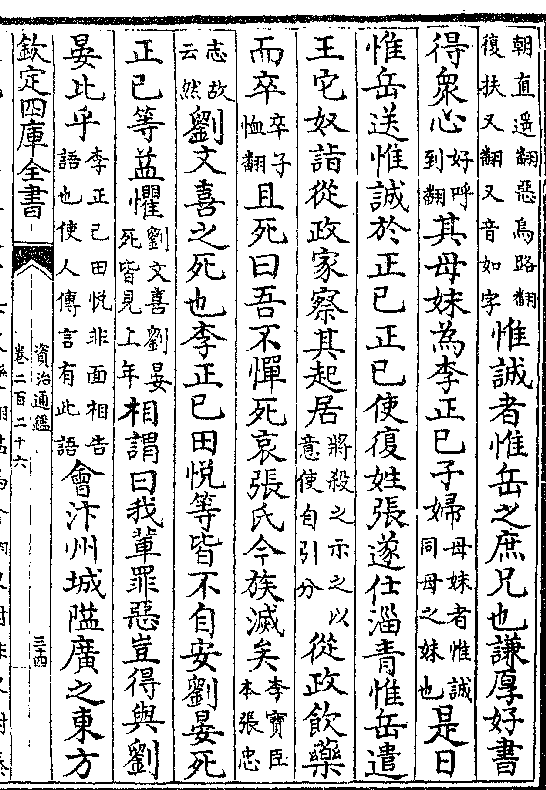 朝直遥翻惡烏路翻復扶又翻又音如字惟誠者惟岳之庶兄也謙厚好書
得衆心好呼到翻其母妹為李正已子婦母妹者惟誠同母之妹也是日
惟岳送惟誠於正已正已使復姓張遂仕淄青惟岳遣
王它奴詣從政家察其起居將殺之示之以意使自引分從政飲藥
而卒卒子恤翻且死曰吾不憚死哀張氏今族滅矣李寶臣本張忠
志故云然劉文喜之死也李正已田悅等皆不自安劉晏死
正已等益懼劉文喜劉晏死皆見上年相謂曰我輩罪惡豈得與劉
晏比乎李正已田悅非面相告語也使人傳言有此語會汴州城隘廣之東方
欽定四庫全書
資治通鑑
卷二百二十六
三十四